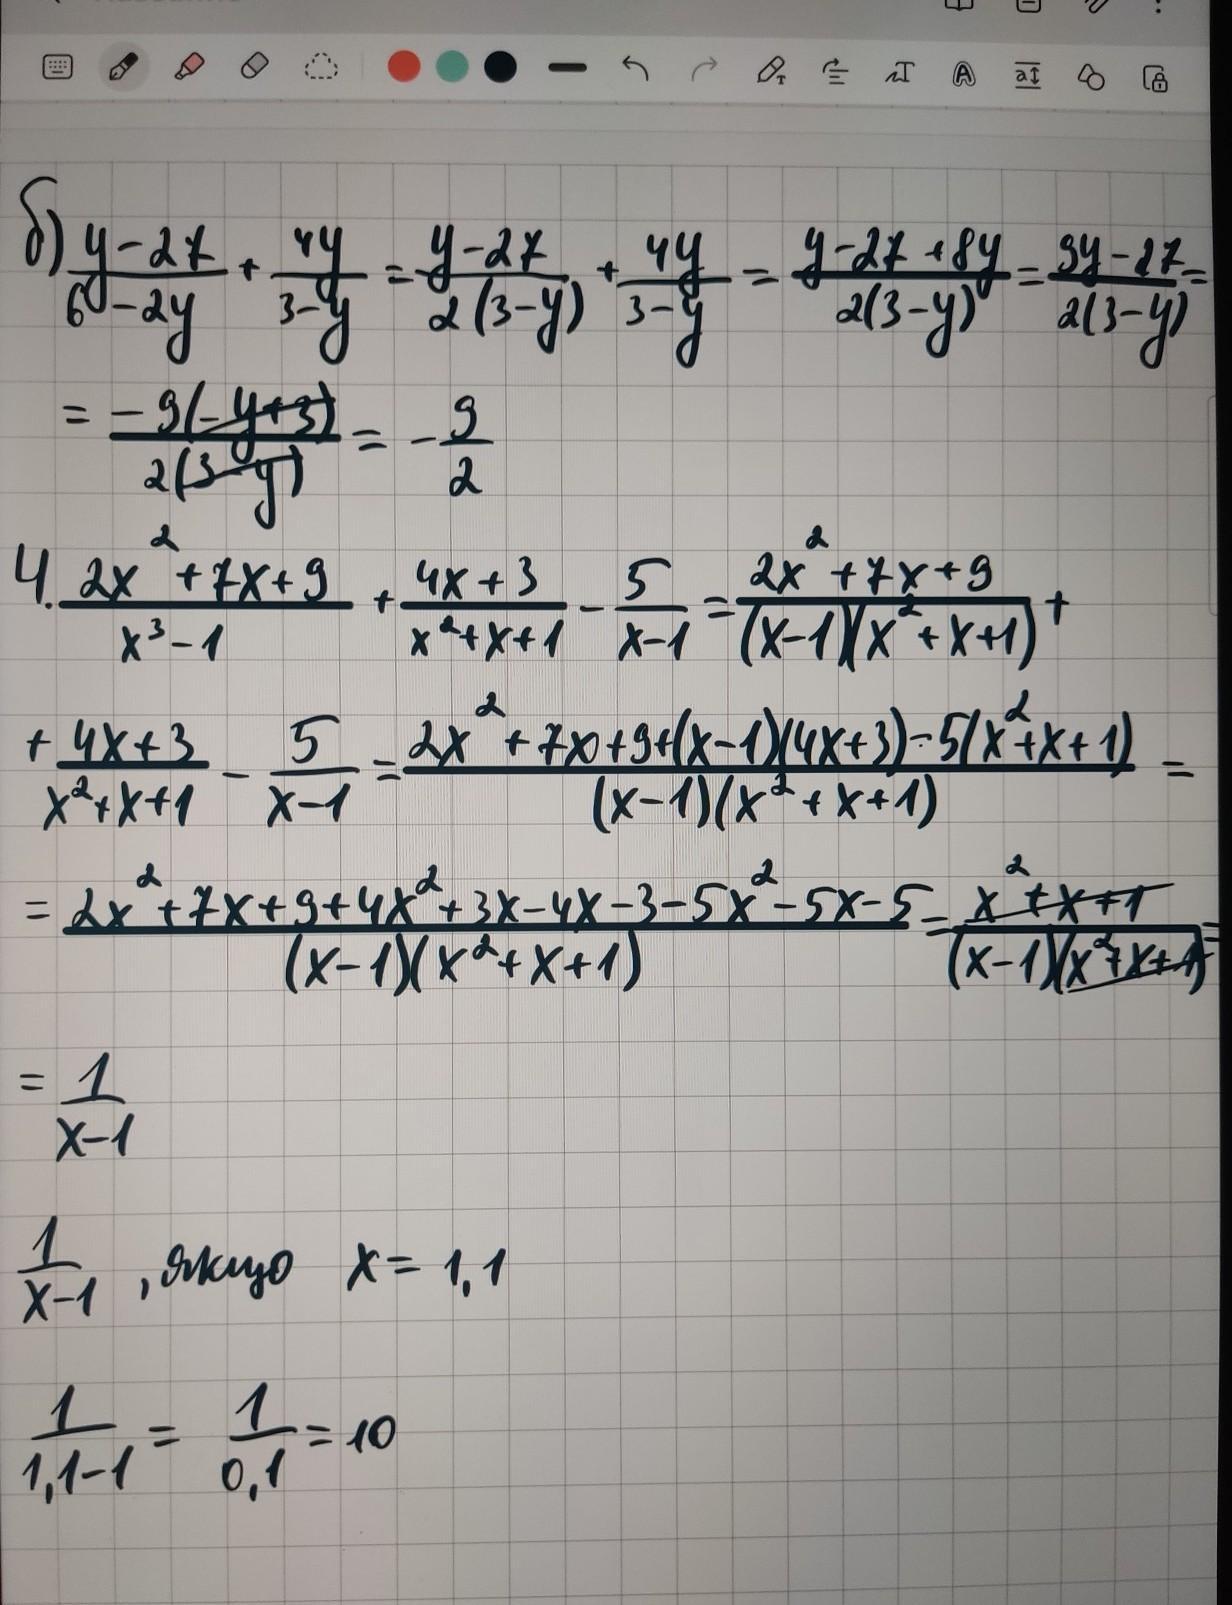 б) (y-27)/(6-2y) + 4y/(3-y) = (y-27)/(2(3-y)) + 4y/(3-y) = (y-27+8y)/(2(3-y)) = (9y-27)/(2(3-y)) =
= (-9(-y+3))/(2(3-y)) = -9/2
4. (2x²+7x+9)/(x³-1) + (4x+3)/(x²+x+1) - 5/(x-1) = (2x²+7x+9)/((x-1)(x²+x+1)) +
+ (4x+3)/(x²+x+1) - 5/(x-1) = (2x²+7x+9+(x-1)(4x+3)-5(x²+x+1))/((x-1)(x²+x+1)) =
= (2x²+7x+9+4x²+3x-4x-3-5x²-5x-5)/((x-1)(x²+x+1)) = (x²+x+1)/((x-1)(x²+x+1)) =
= 1/(x-1)
1/(x-1) , якщо x = 1,1
1/(1,1-1) = 1/0,1 = 10